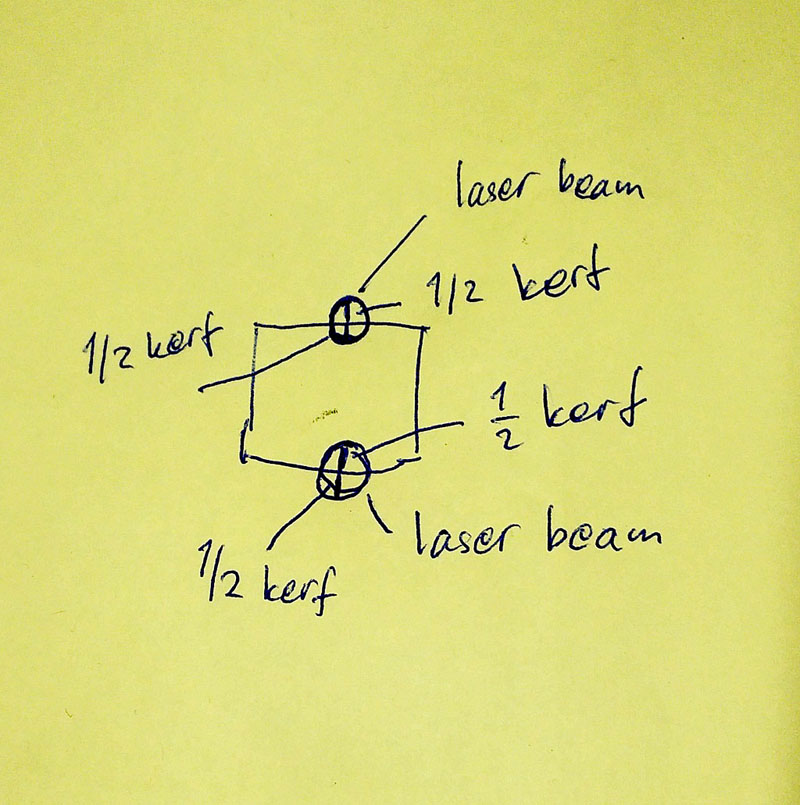 laser beam
1/2 kerf
1/2 kerf
1/2 kerf
laser beam
1/2 kerf